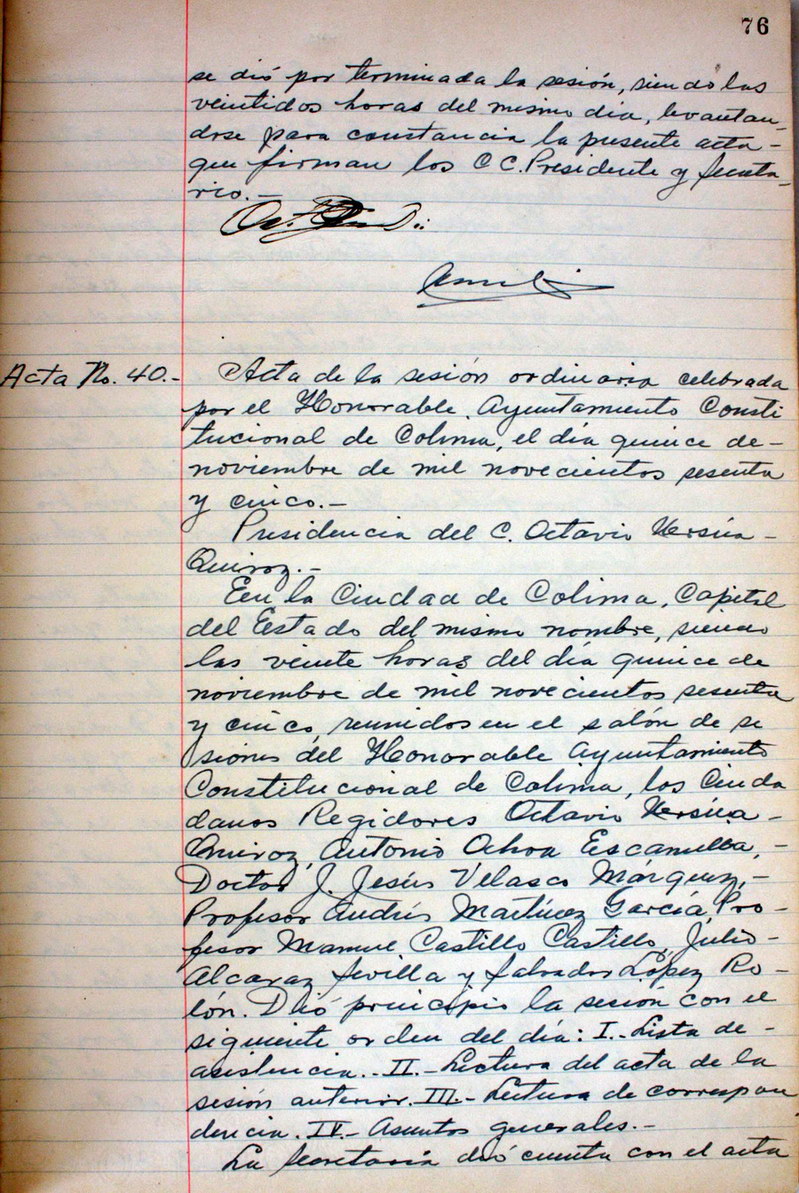 76
se dió por terminada la sesión, siendo las
veintidos horas del mismo día, levantan-
dose para constancia la presente acta-
que firman los C C. Presidente y Secreta-
rio.-
Acta No. 40.- Acta de la sesión ordinaria celebrada
por el Honorable Ayuntamiento Consti
tucional de Colima, el día quince de-
noviembre de mil novecientos sesenta
y cinco.-
Presidencia del C. Octavio Ursúa-
Quiroz.-
En la Ciudad de Colima, Capital
del Estado del mismo nombre, siendo
las veinte horas del día quince de
noviembre de mil novecientos sesenta
y cinco, reunidos en el salón de se
siones del Honorable Ayuntamiento
Constitucional de Colima, los Ciuda
danos Regidores Octavio Ursúa-
Quiroz, Antonio Ochoa Escamilla,-
Doctor J. Jesús Velasco Márquez,-
Profesor Andrés Martínez García, Pro-
fesor Manuel Castillo Castillo, Julio-
Alcaraz Sevilla y Salvador López Ro-
lón. Dió principio la sesión con el
siguiente orden del día: I.- Lista de-
asistencia.- II.- Lectura del acta de la
sesión anterior. III.- Lectura de correspon
dencia. IV.- Asuntos generales.-
La Secretaría dió cuenta con el acta